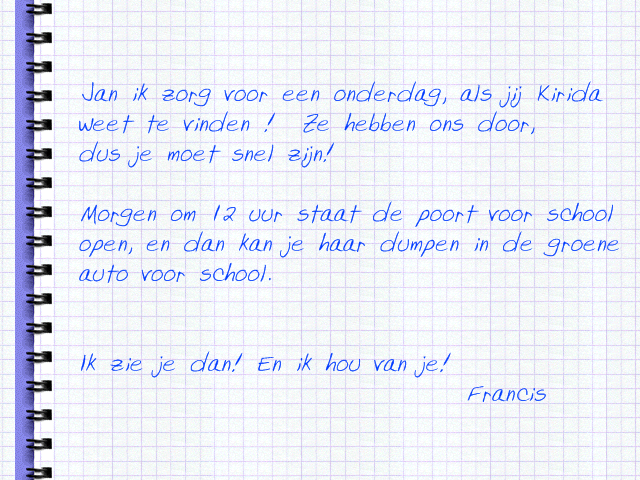 Jan ik zorg voor een onderdag, als jij Kirida
weet te vinden ! Ze hebben ons door,
dus je moet snel zijn!
Morgen om 12 uur staat de poort voor school
open, en dan kan je haar dumpen in de groene
auto voor school.
Ik zie je dan! En ik hou van je!
Francis